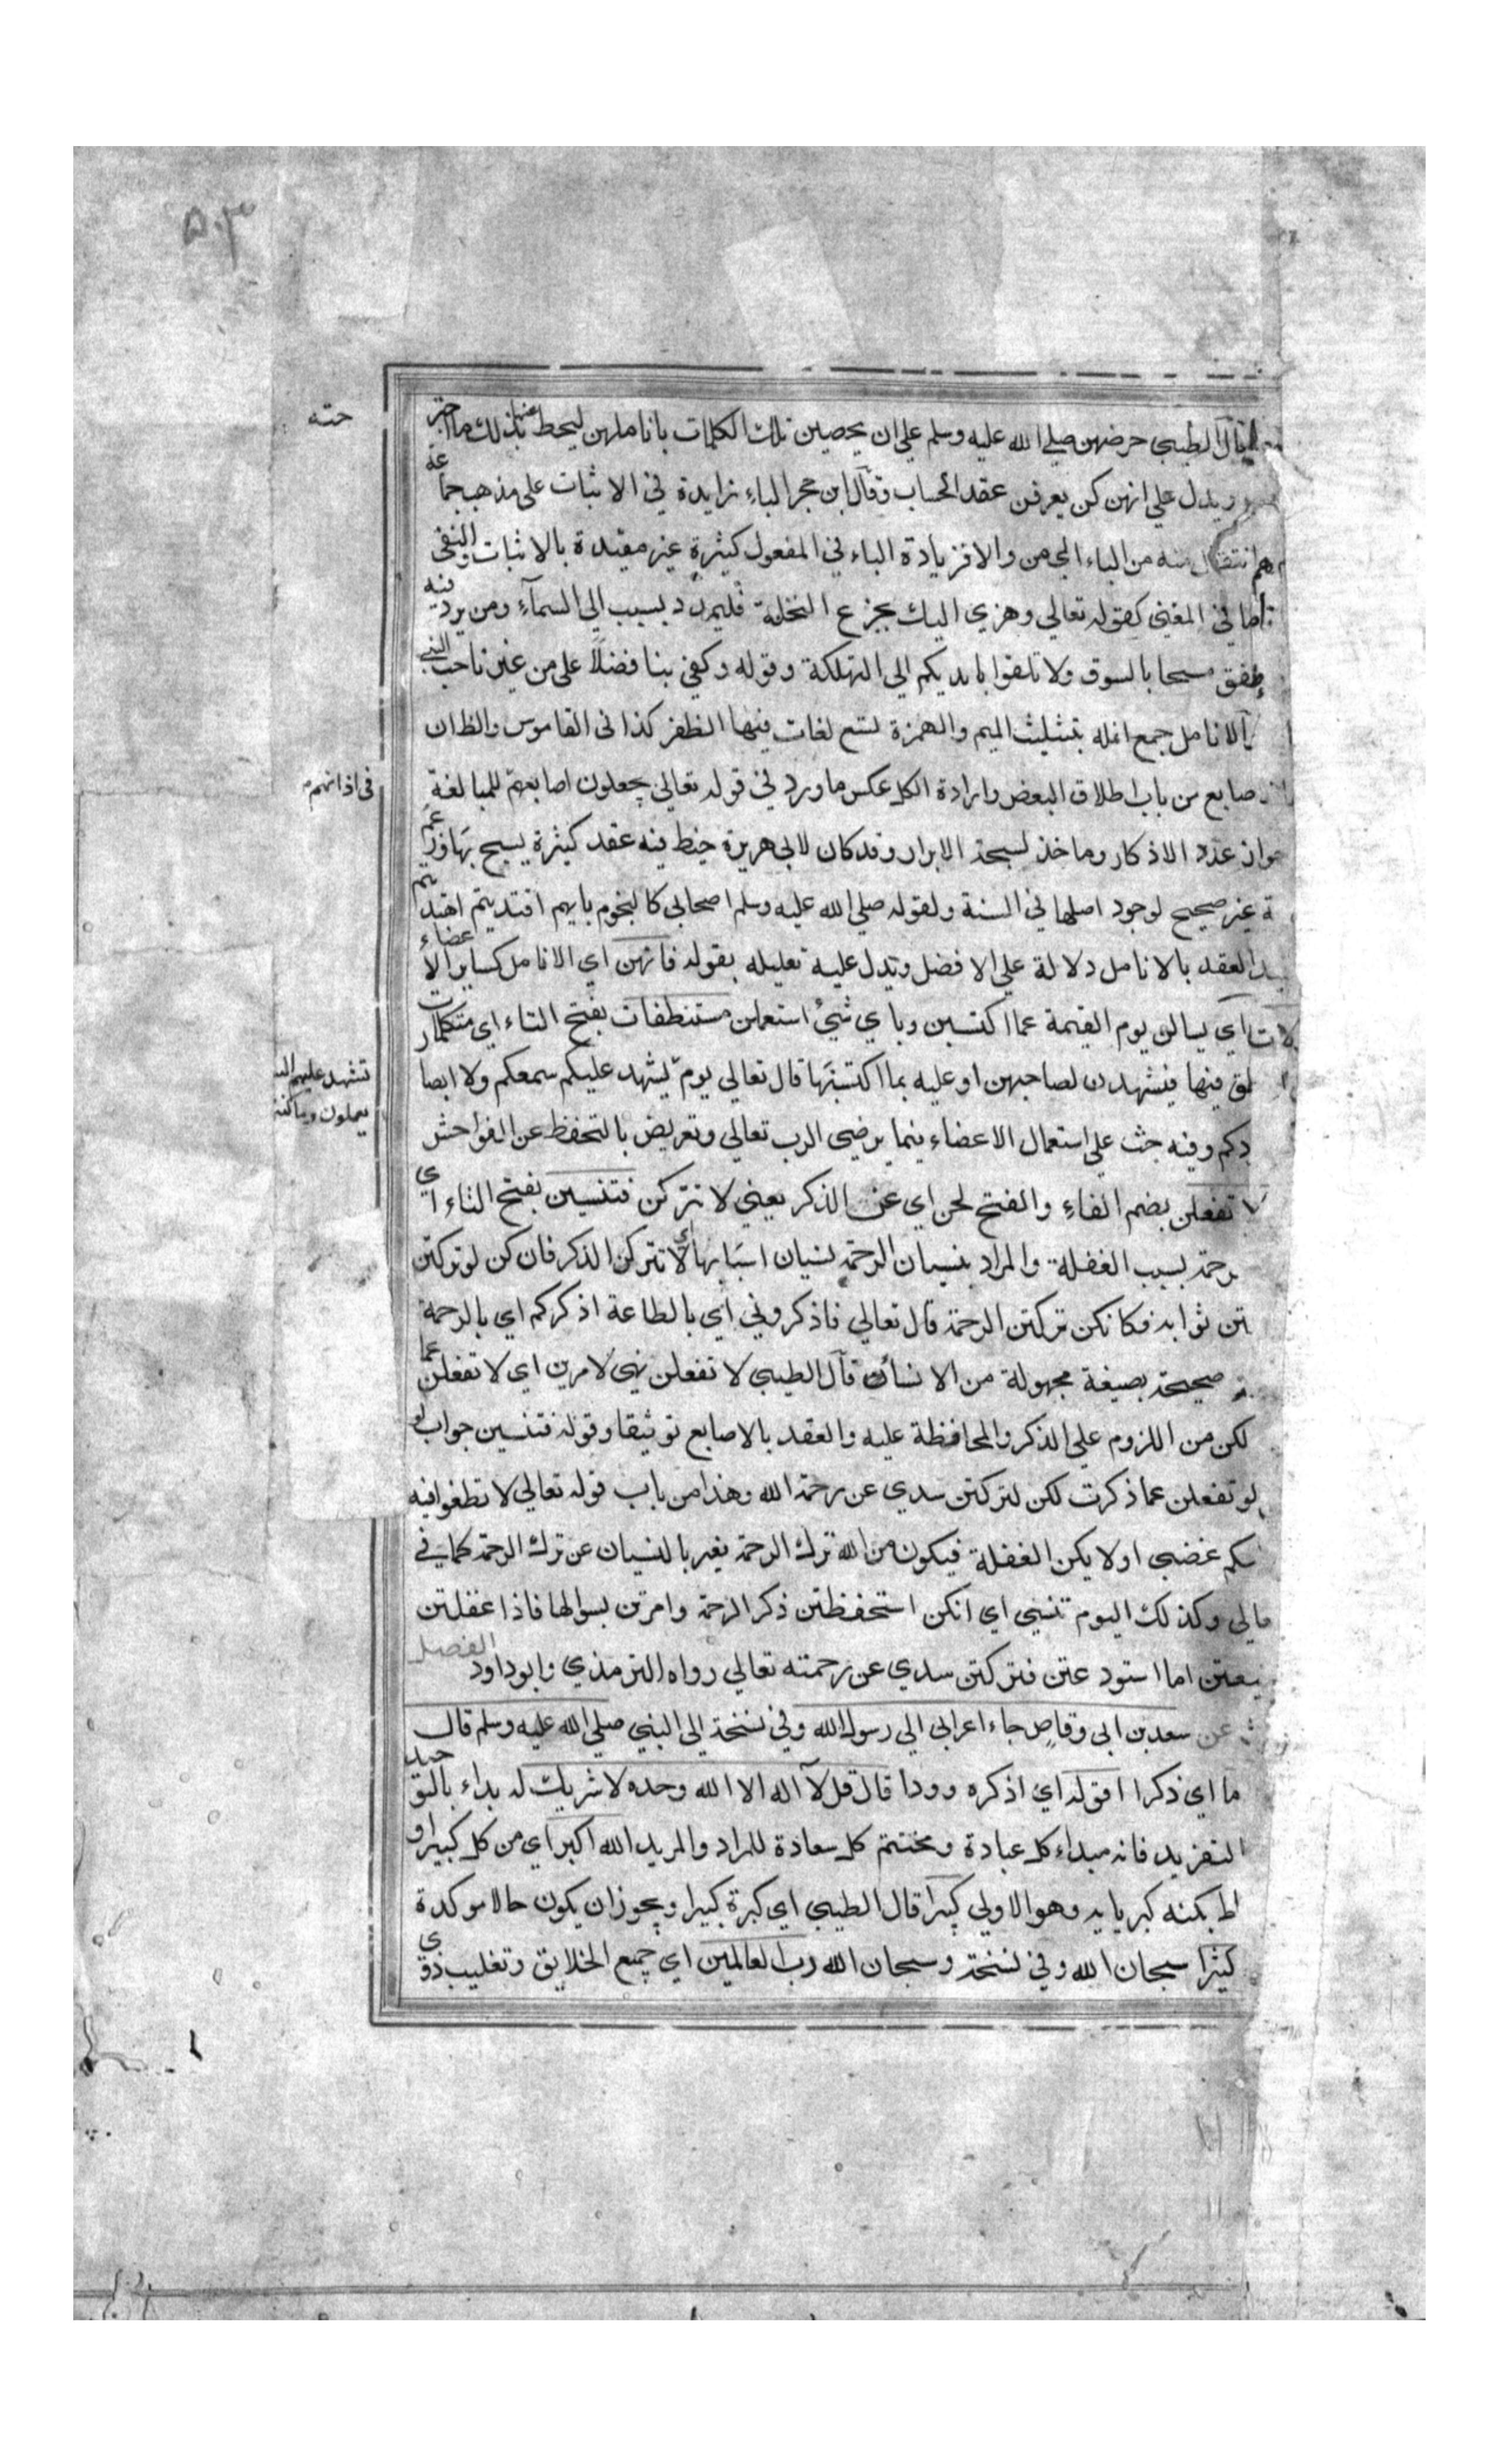 ٥٠٣
قال الطيبي حرضهن صلى الله عليه وسلم على ان يحصين تلك الكلمات باناملهن ليحط عنها بذلك ما اجتر
حته
ويدل على انهن كن يعرفن عقد الحساب وقال ابن حجر الباء زايدة في الاثبات على مذهب جماعة
من الباء الى من والا فزيادة الباء في المفعول كثيرة غير مقيدة بالاثبات والنفي
في المغني كقوله تعالى وهزي اليك بجزع النخلة فليمدد بسبب الى السمآء ومن يرد فيه
فطفق مسحا بالسوق ولا تلقوا بايديكم الى التهلكة وقوله وكفى بنا فضلاً على من غيرنا حب النبي
الانامل جمع انمله بتثليث الميم والهمزة تسع لغات فيها الظفر كذا في القاموس والظان
صابع من باب اطلاق البعض وارادة الكل عكس ما ورد في قوله تعالى يجعلون اصابعهم للمبالغة
في اذانهم
جواز عدد الاذكار وماخذ لسبحة الابرار وقد كان لابي هريرة خيط فيه عقد كثيرة يسبح بها وزعم
ة غير صحيح لوجود اصلها في السنة ولقوله صلى الله عليه وسلم اصحابي كالنجوم بايهم اقتديتم اهتديتم
العقد بالانامل دلالة على الافضل وتدل عليه تعليله بقوله فانهن اي الانامل كساير الاعضاء
لات اي يسالن يوم القيمة عما اكتسبن وباي شيء استعملن مستنطقات بفتح التاء اي متكلمات
لق فيها فيشهدن لصاحبهن او عليه بما اكتسبتها قال تعالى يوم يشهد عليكم سمعكم ولا ابصا
تشهد عليهم
يعملون وما كنتم
دكم وفيه حث على استعمال الاعضاء فيما يرضى الرب تعالى وتعريض بالتحفظ عن الفواحش
لا تفعلن بضم الفاء والفتح لحن اي عن الذكر يعني لا تتركن فتنسين بفتح التاء اي
رحمة بسبب الغفلة والمراد بنسيان الرحمة نسيان اسبابها اي لا تتركن الذكر فان كن لو تركتن
تن ثوابه فكانكن تركتن الرحمة قال تعالى فاذكروني اي بالطاعة اذكركم اي بالرحمة
صحيحة بصيغة مجهولة من الانساء قال الطيبي لا تفعلن نهي لامرين اي لا تفعلن عما
لكن من اللزوم على الذكر والمحافظة عليه والعقد بالاصابع توثيقا وقوله فتنسين جواب لو
لو تفعلن عما ذكرت لكن لتركتن سدي عن رحمة الله وهذا من باب قوله تعالى لا تطغوا فيه
كم غضبي اولا يكن الغفلة فيكون من الله ترك الرحمة يغبر بالنسيان عن ترك الرحمة كما في
تعالى وكذلك اليوم تنسى اي انكن استحفظتن ذكر الرحمة وامرتن بسوالها فاذا غفلتن
يعتن اما استودعتن فتركتن سدي عن رحمته تعالى رواه الترمذي وابو داود الفصل
عن سعد بن ابي وقاص جاء اعرابي الى رسول الله وفي نسخة الى النبي صلى الله عليه وسلم قال
ما اي ذكرا اقوله اي اذكره وردا قال قل لآ اله الا الله وحده لا شريك له بداء بالتوحيد
التفريد فانه مبداء كل عبادة ومختتم كل سعادة للمراد والمريد الله اكبر اي من كل كبير او
اط بكنه كبريايه وهو الاولي كبيرا قال الطيبي اي كبرة كبيرا ويجوز ان يكون حالا موكدة
كثيرا سبحان الله وفي نسخة وسبحان الله رب العالمين اي جميع الخلايق وتغليب ذوي